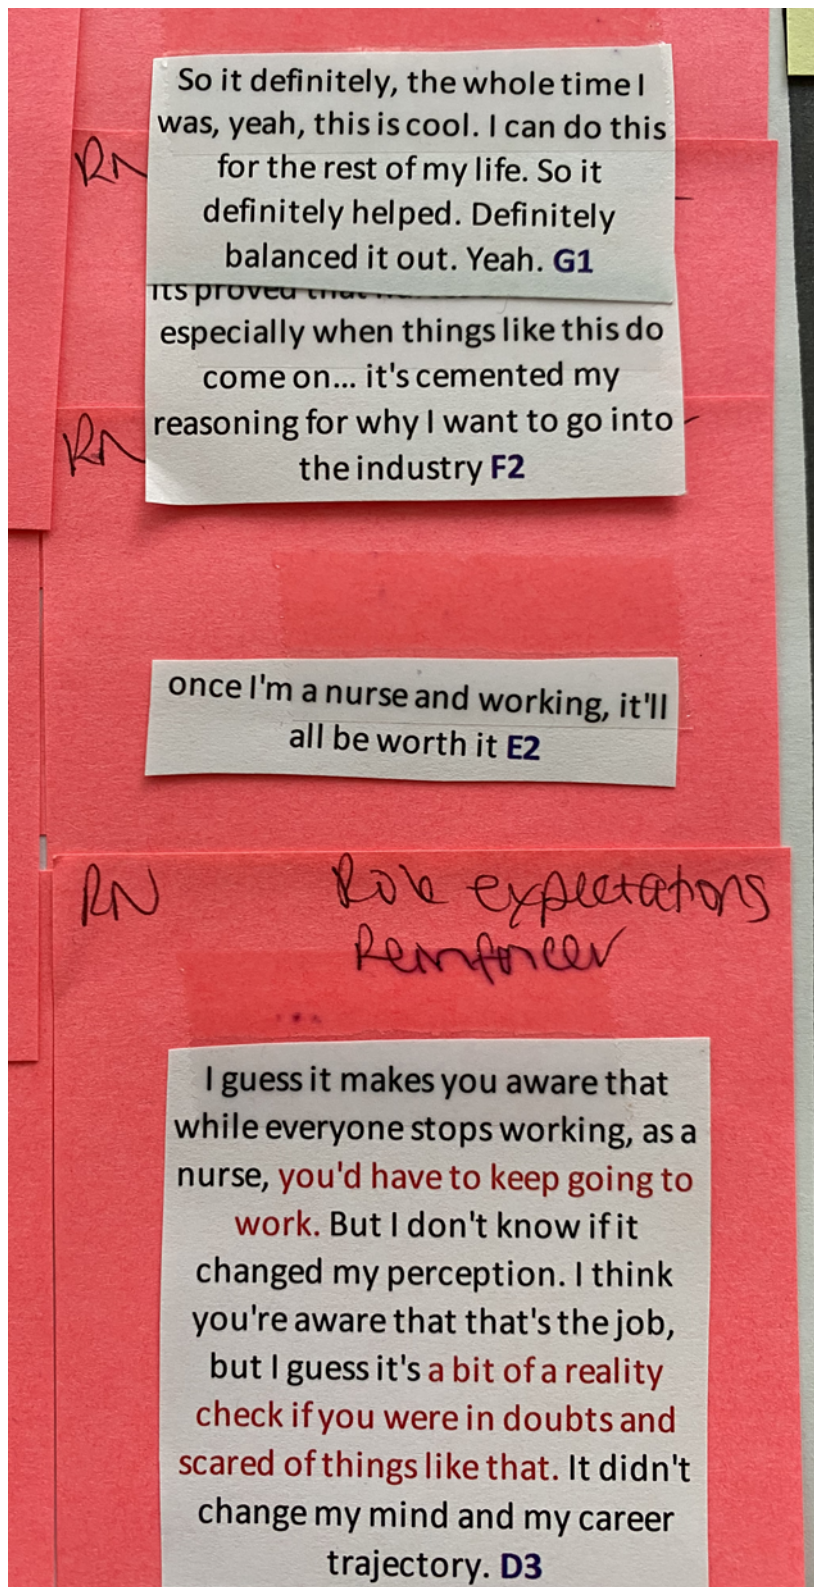 So it definitely, the whole time I
was, yeah, this is cool. I can do this
RN
for the rest of my life. So it
definitely helped. Definitely
balanced it out. Yeah. G1
its proved that
especially when things like this do
come on... it's cemented my
reasoning for why I want to go into
RN
the industry F2
once I'm a nurse and working, it'll
all be worth it E2
RN Role expectations
Reinforcer
I guess it makes you aware that
while everyone stops working, as a
nurse, you'd have to keep going to
work. But I don't know if it
changed my perception. I think
you're aware that that's the job,
but I guess it's a bit of a reality
check if you were in doubts and
scared of things like that. It didn't
change my mind and my career
trajectory. D3